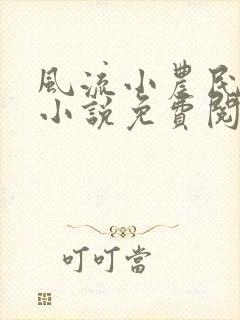 風流小農民
小說免費閱
叮叮當